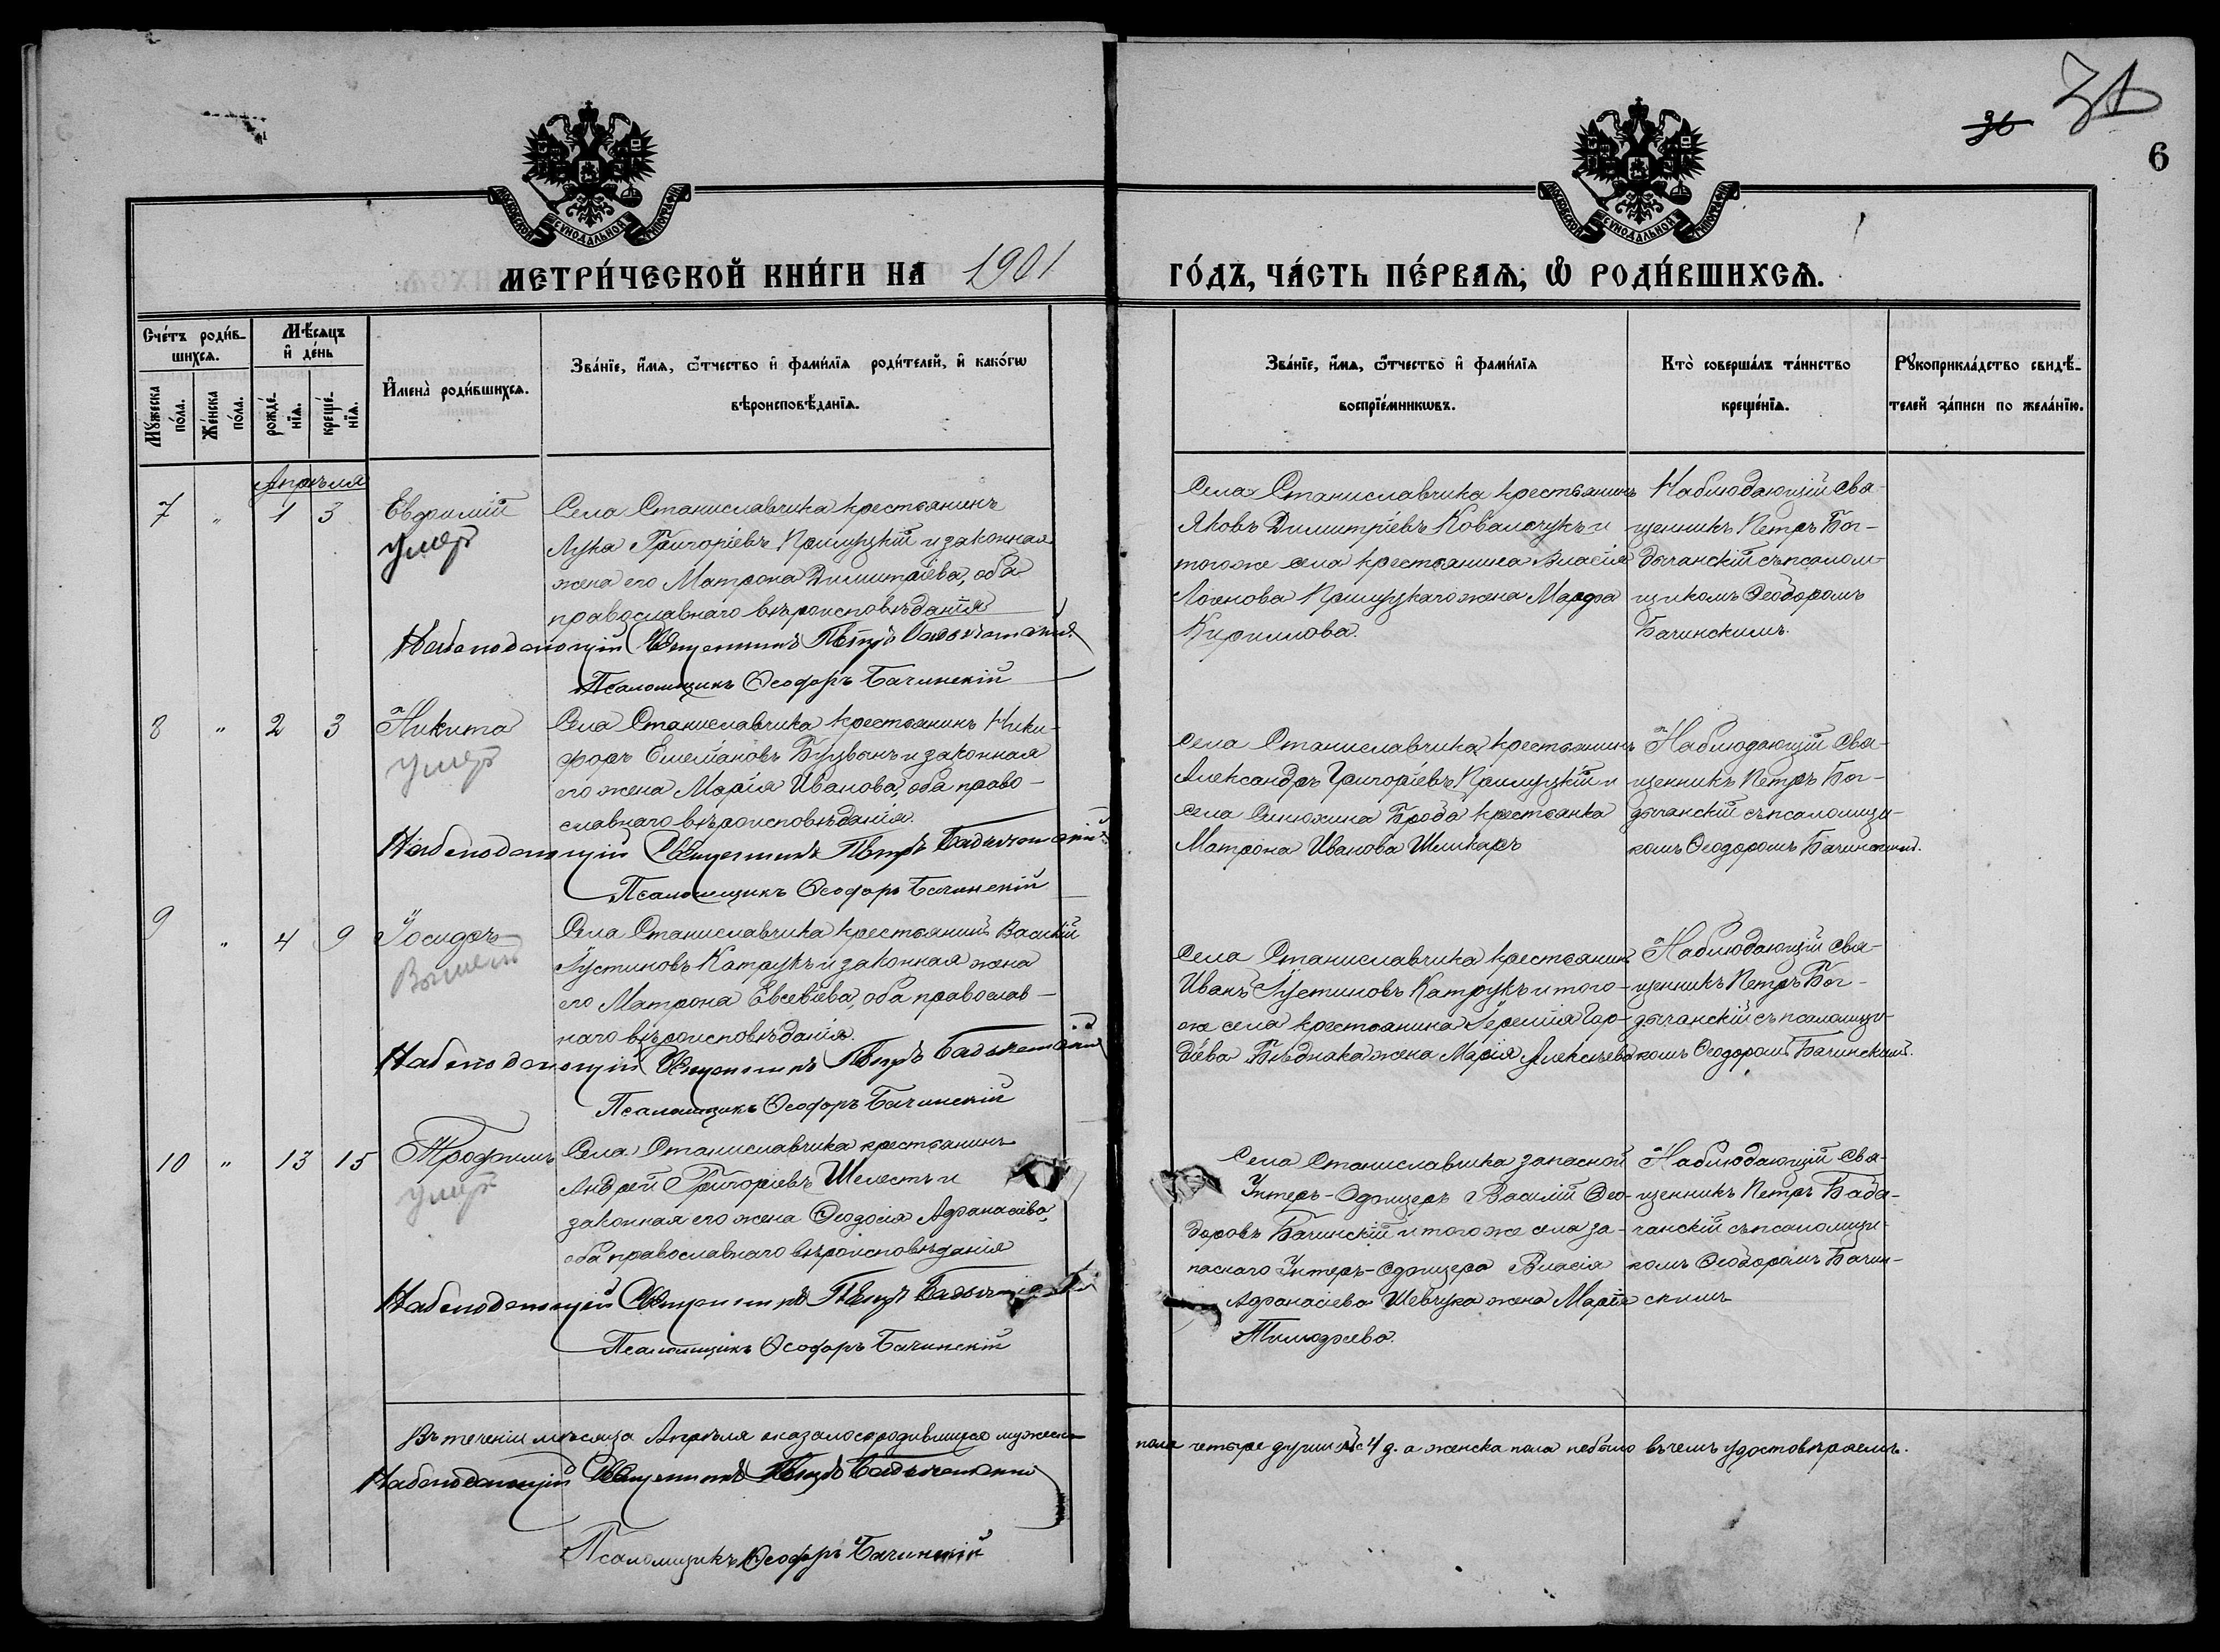 36
31
6
МОСКОВСКОЙ СѴНОДАЛЬНОЙ ТИПОГРАФІИ
МОСКОВСКОЙ СѴНОДАЛЬНОЙ ТИПОГРАФІИ
МЕТРИ́ЧЕСКОЙ КНИ́ГИ НА 1901
ГО́ДЪ, ЧА́СТЬ ПЕ́РВАѦ, Ѡ РОДИ́ВШИХСѦ.
Сче́тъ роди́в-
шихсѧ.
Мѣ́сѧцъ
и де́нь
Му́жеска
по́ла.
Же́нска
по́ла.
рожде́-
нїѧ.
креще́-
нїѧ.
И҆мена̀ роди́вшихсѧ.
Зва́нїе, и҆́мѧ, ѻ҆́тчество и҆ фами́лїѧ роди́телей, и҆ како́гѡ
вѣроисповѣ́данїѧ.
Зва́нїе, и҆́мѧ, ѻ҆́тчество и҆ фами́лїѧ
воспрїе́мникѡвъ.
Кто̀ соверша́лъ та́инство
креще́нїѧ.
Рꙋкоприкла́дство свидѣ́-
телей за́писи по жела́нїю.
Апрѣля
7 " 1 3 Евфимій
умеръ
Села Станиславчика крестьянинъ
Лука Григоріевъ Прилуцкій и законная
жена его Матрона Димитріева, оба
православнаго вѣроисповѣданія
Наблюдающій Священникъ Петръ
Псаломщикъ Ѳеодоръ Бачинскій
Села Станиславчика крестьянинъ
Яковъ Димитріевъ Ковальчукъ и
того же села крестьянина Власія
Логинова Прилуцкаго жена Марфа
Кириллова.
Наблюдающій свя-
щенникъ Петръ Бог-
дычанскій съ псалом-
щикомъ Ѳеодоромъ
Бачинскимъ.
8 " 2 3 Никита
умеръ
Села Станиславчика крестьянинъ Ники-
форъ Емельяновъ Буцванъ и законная
его жена Марія Иванова, оба право-
славнаго вѣроисповѣданія.
Наблюдающій Священникъ Петръ
Псаломщикъ Ѳеодоръ Бачинскій
Села Станиславчика крестьянинъ
Александръ Григоріевъ Прилуцкій и
села Синюхина Брода крестьянка
Матрона Иванова Шинкаръ
Наблюдающій Свя-
щенникъ Петръ Бог-
дычанскій съ псаломщи-
комъ Ѳеодоромъ Бачинскимъ.
9 " 4 9 Іосифъ
Села Станиславчика крестьянинъ Василій
Іустиновъ Катрукъ и законная жена
его Матрона Евсевіева, оба православ-
наго вѣроисповѣданія.
Наблюдающій Священникъ Петръ
Псаломщикъ Ѳеодоръ Бачинскій
Села Станиславчика крестьянинъ
Иванъ Іустиновъ Катрукъ и того-
же села крестьянина Іеремія Гор-
діева Бѣдняка жена Марія Алексѣева
Наблюдающій Свя-
щенникъ Петръ Бог-
дычанскій съ псаломщи-
комъ Ѳеодоромъ Бачинскимъ.
10 " 13 15 Трофимъ
умеръ
Села Станиславчика крестьянинъ
Андрей Григоріевъ Шелесть и
законная его жена Ѳеодосія Афанасіева,
оба православнаго вѣроисповѣданія
Наблюдающій Священникъ Петръ
Псаломщикъ Ѳеодоръ Бачинскій
Села Станиславчика запасной
Унтеръ-Офицеръ Василій Ѳео-
доровъ Бачинскій и того же села за-
паснаго Унтеръ-Офицера Власія
Афанасіева Шевчука жена Марія
Тимофеева.
Наблюдающій Свя-
щенникъ Петръ Бада-
чанскій съ псаломщи-
комъ Ѳеодоромъ Бачин-
скимъ
Въ теченіи мѣсяца Апрѣля оказалось родившихся мужеска
пола четыре души 4 д. а женска пола небыло въ чемъ удостовѣряемъ.
Наблюдающій Священникъ Петръ
Псаломщикъ Ѳеодоръ Бачинскій